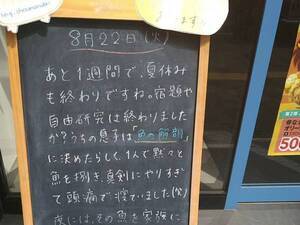 8月22日(火)
あと1週間で、夏休み
も終わりですね。宿題や
自由研究は終わりました
か？うちの息子は「魚の解剖」
に決めたらしく、1人で黙々と
魚を捌き、真剣にやりすぎ
て頭痛で寝ていました(笑)
夜には、その魚を家族に
500